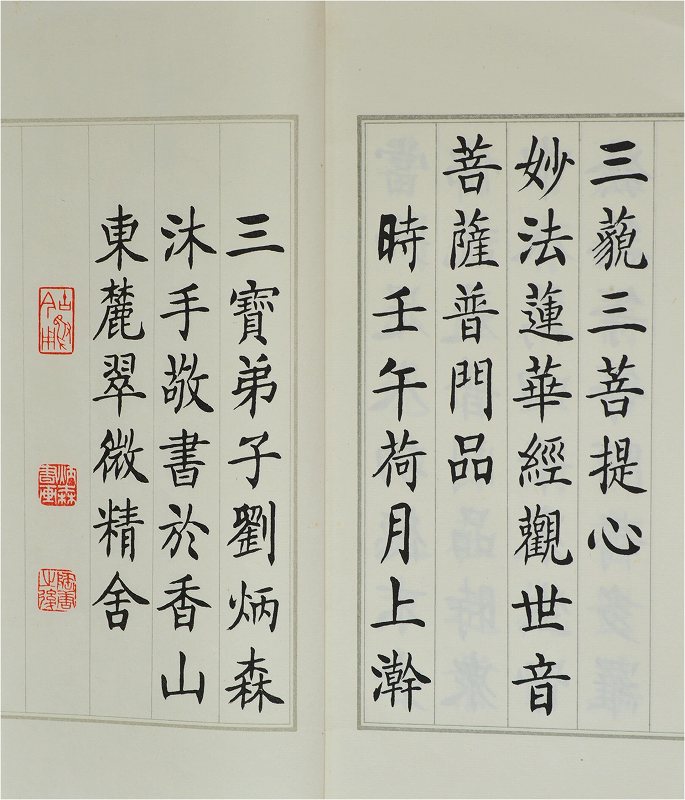 三藐三菩提心
妙法蓮華經觀世音
菩薩普門品
時壬午荷月上澣
三寶弟子劉炳森
沐手敬書於香山
東麓翠微精舍
炳森書画